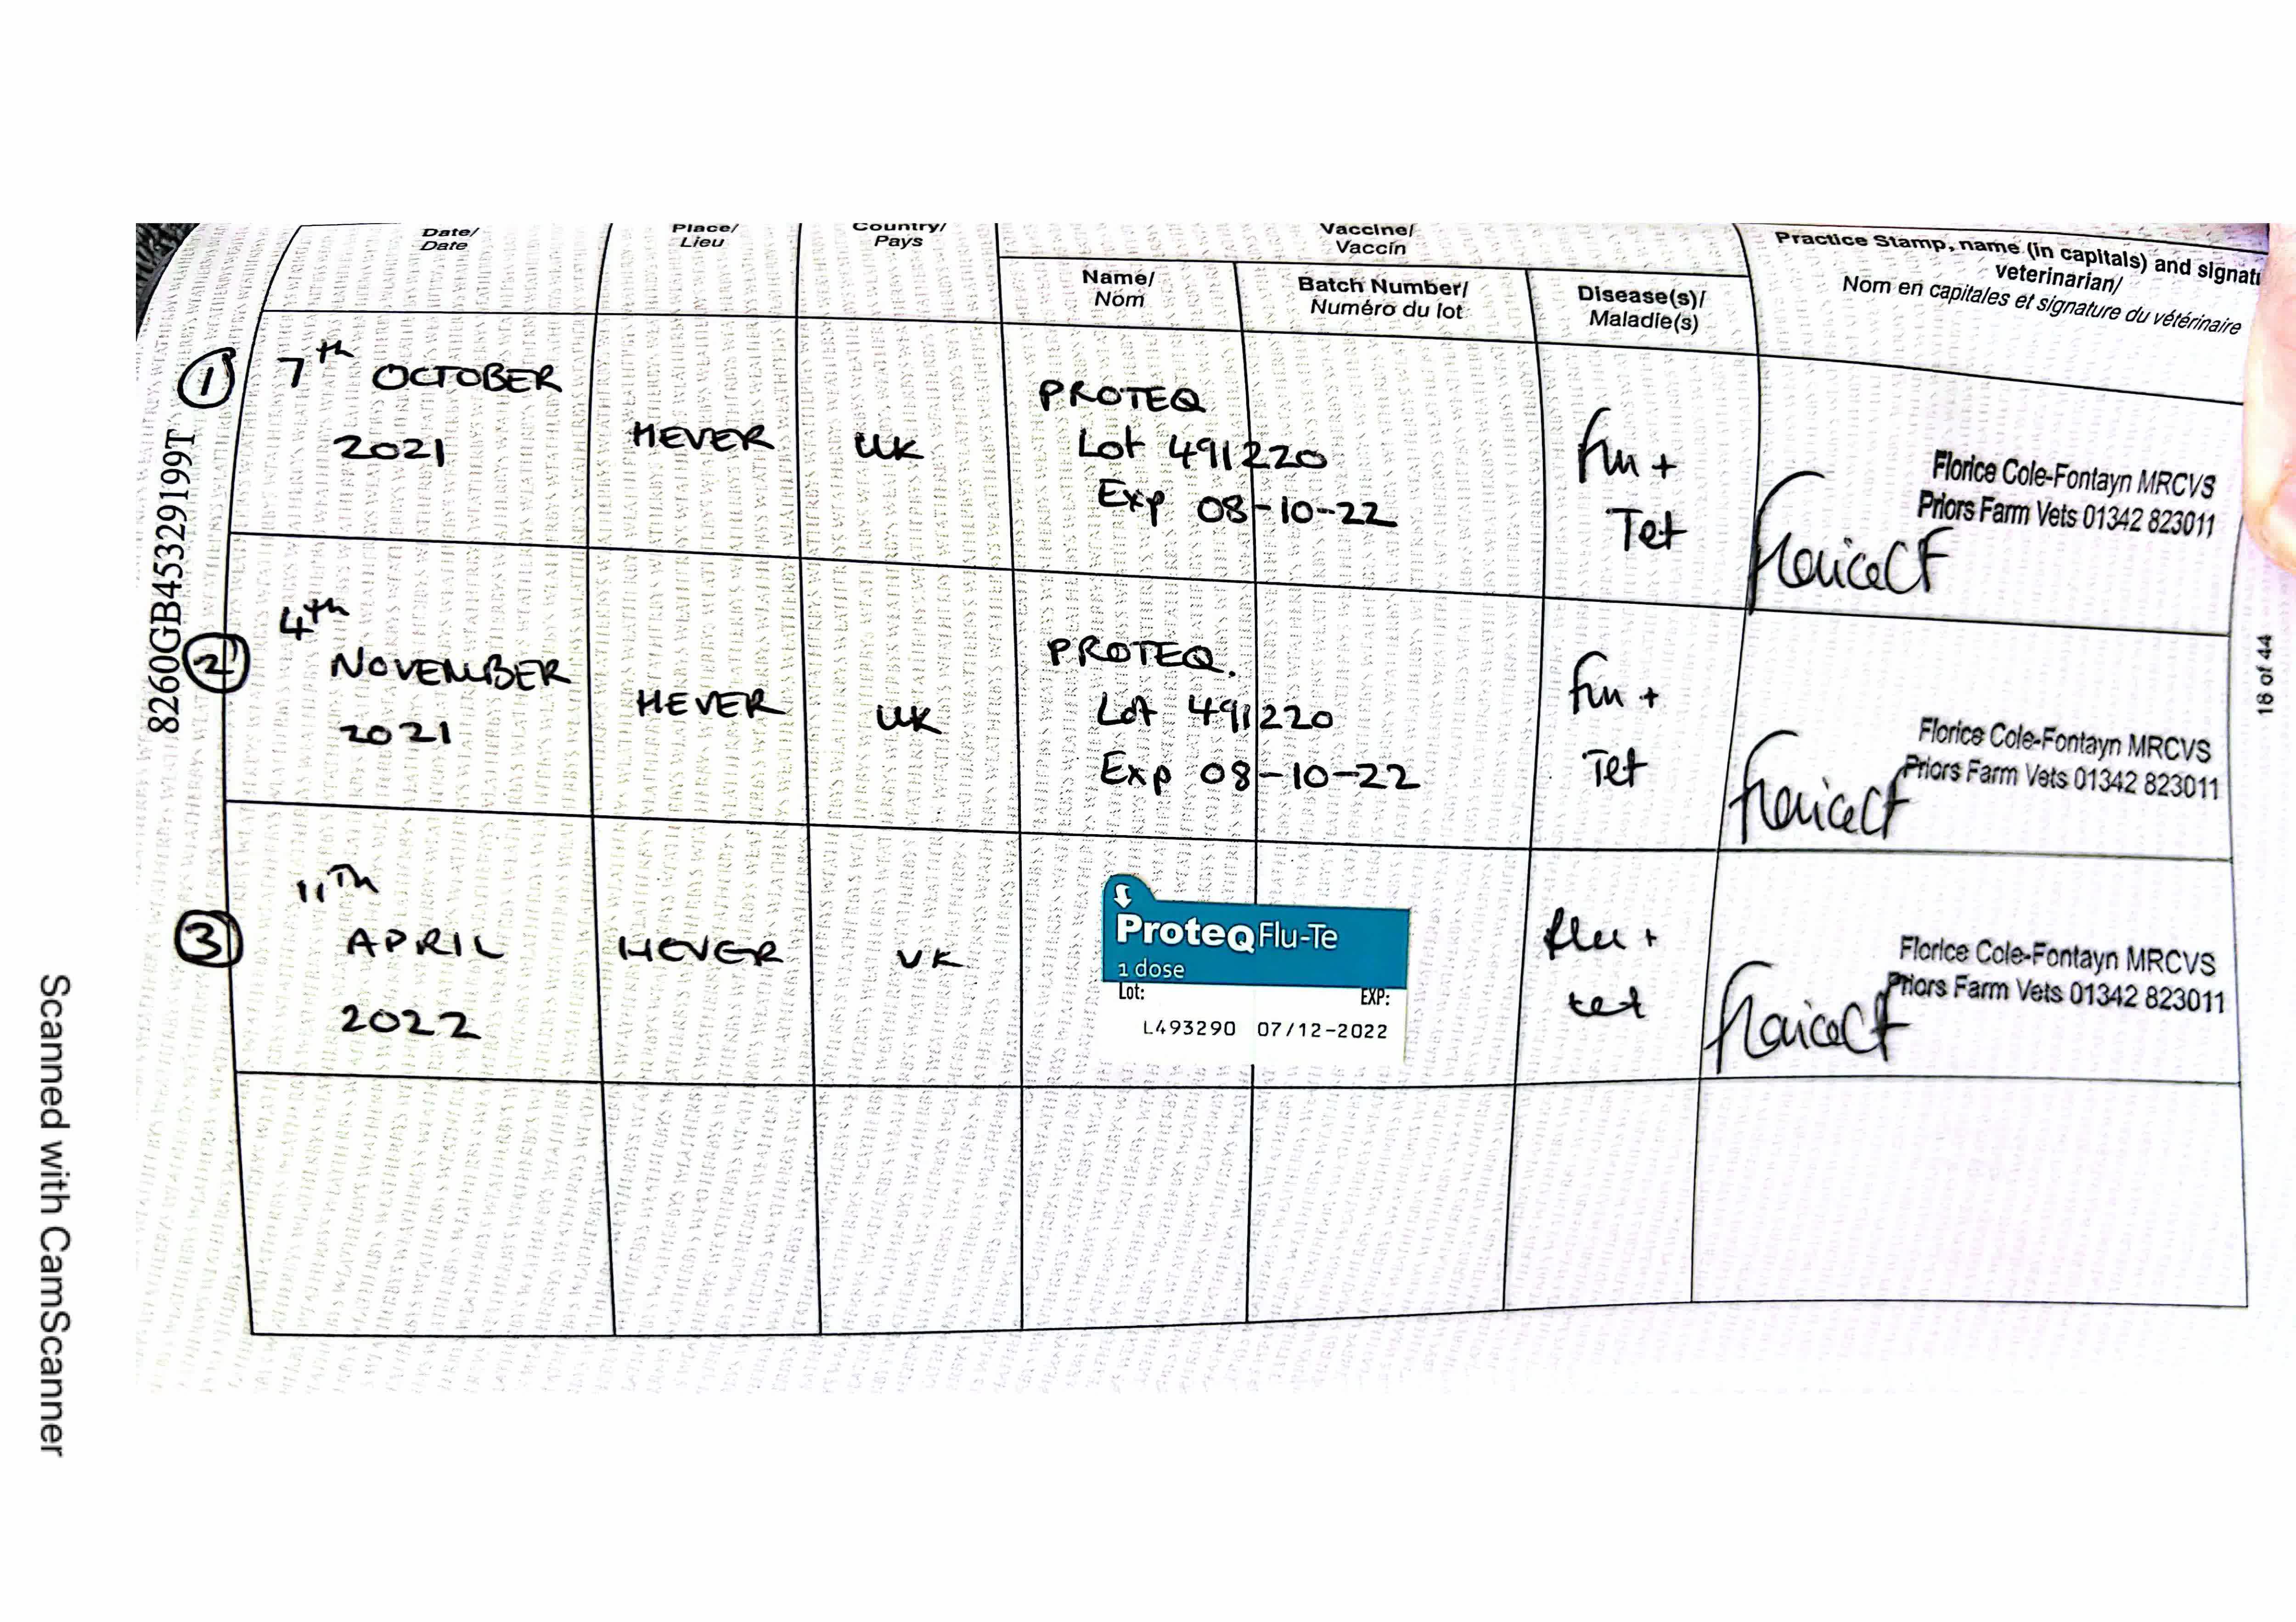 Date/
Date
Place/
Lieu
Country/
Pays
Vaccine/
Vaccin
Name/
Nom
Batch Number/
Numéro du lot
Disease(s)/
Maladie(s)
Practice Stamp, name (in capitals) and signat
veterinarian/
Nom en capitales et signature du vétérinaire
8260GB45329199T
1
7th OCTOBER
2021
HEVER
UK
PROTEQ
Lot 491220
Exp 08-10-22
Flu +
Tet
Florice Cole-Fontayn MRCVS
Priors Farm Vets 01342 823011
FloriceCF
2
4th
NOVEMBER
2021
HEVER
UK
PROTEQ.
Lot 491220
Exp 08-10-22
Flu +
Tet
Florice Cole-Fontayn MRCVS
Priors Farm Vets 01342 823011
FloriceCF
3
11Th
APRIL
2022
HEVER
UK
ProteqFlu-Te
1 dose
Lot: EXP:
L493290 07/12-2022
flu +
tet
Florice Cole-Fontayn MRCVS
Priors Farm Vets 01342 823011
FloriceCF
18 of 44
Scanned with CamScanner